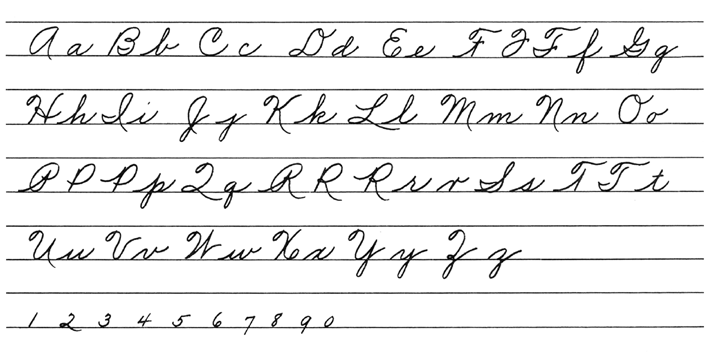 A a B b C c D d E e F F F f G g
H h I i J j K k L l M m N n O o
P P P p Q q R R R r r S s T T t
U u V v W w X x Y y Z z
1 2 3 4 5 6 7 8 9 0